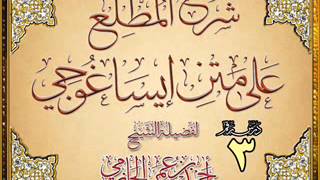 شرح المطلع
على متن إيساغوجي
لفضيلة الشيخ
أحمد بن عمر الحازمي
درس رقم
٣